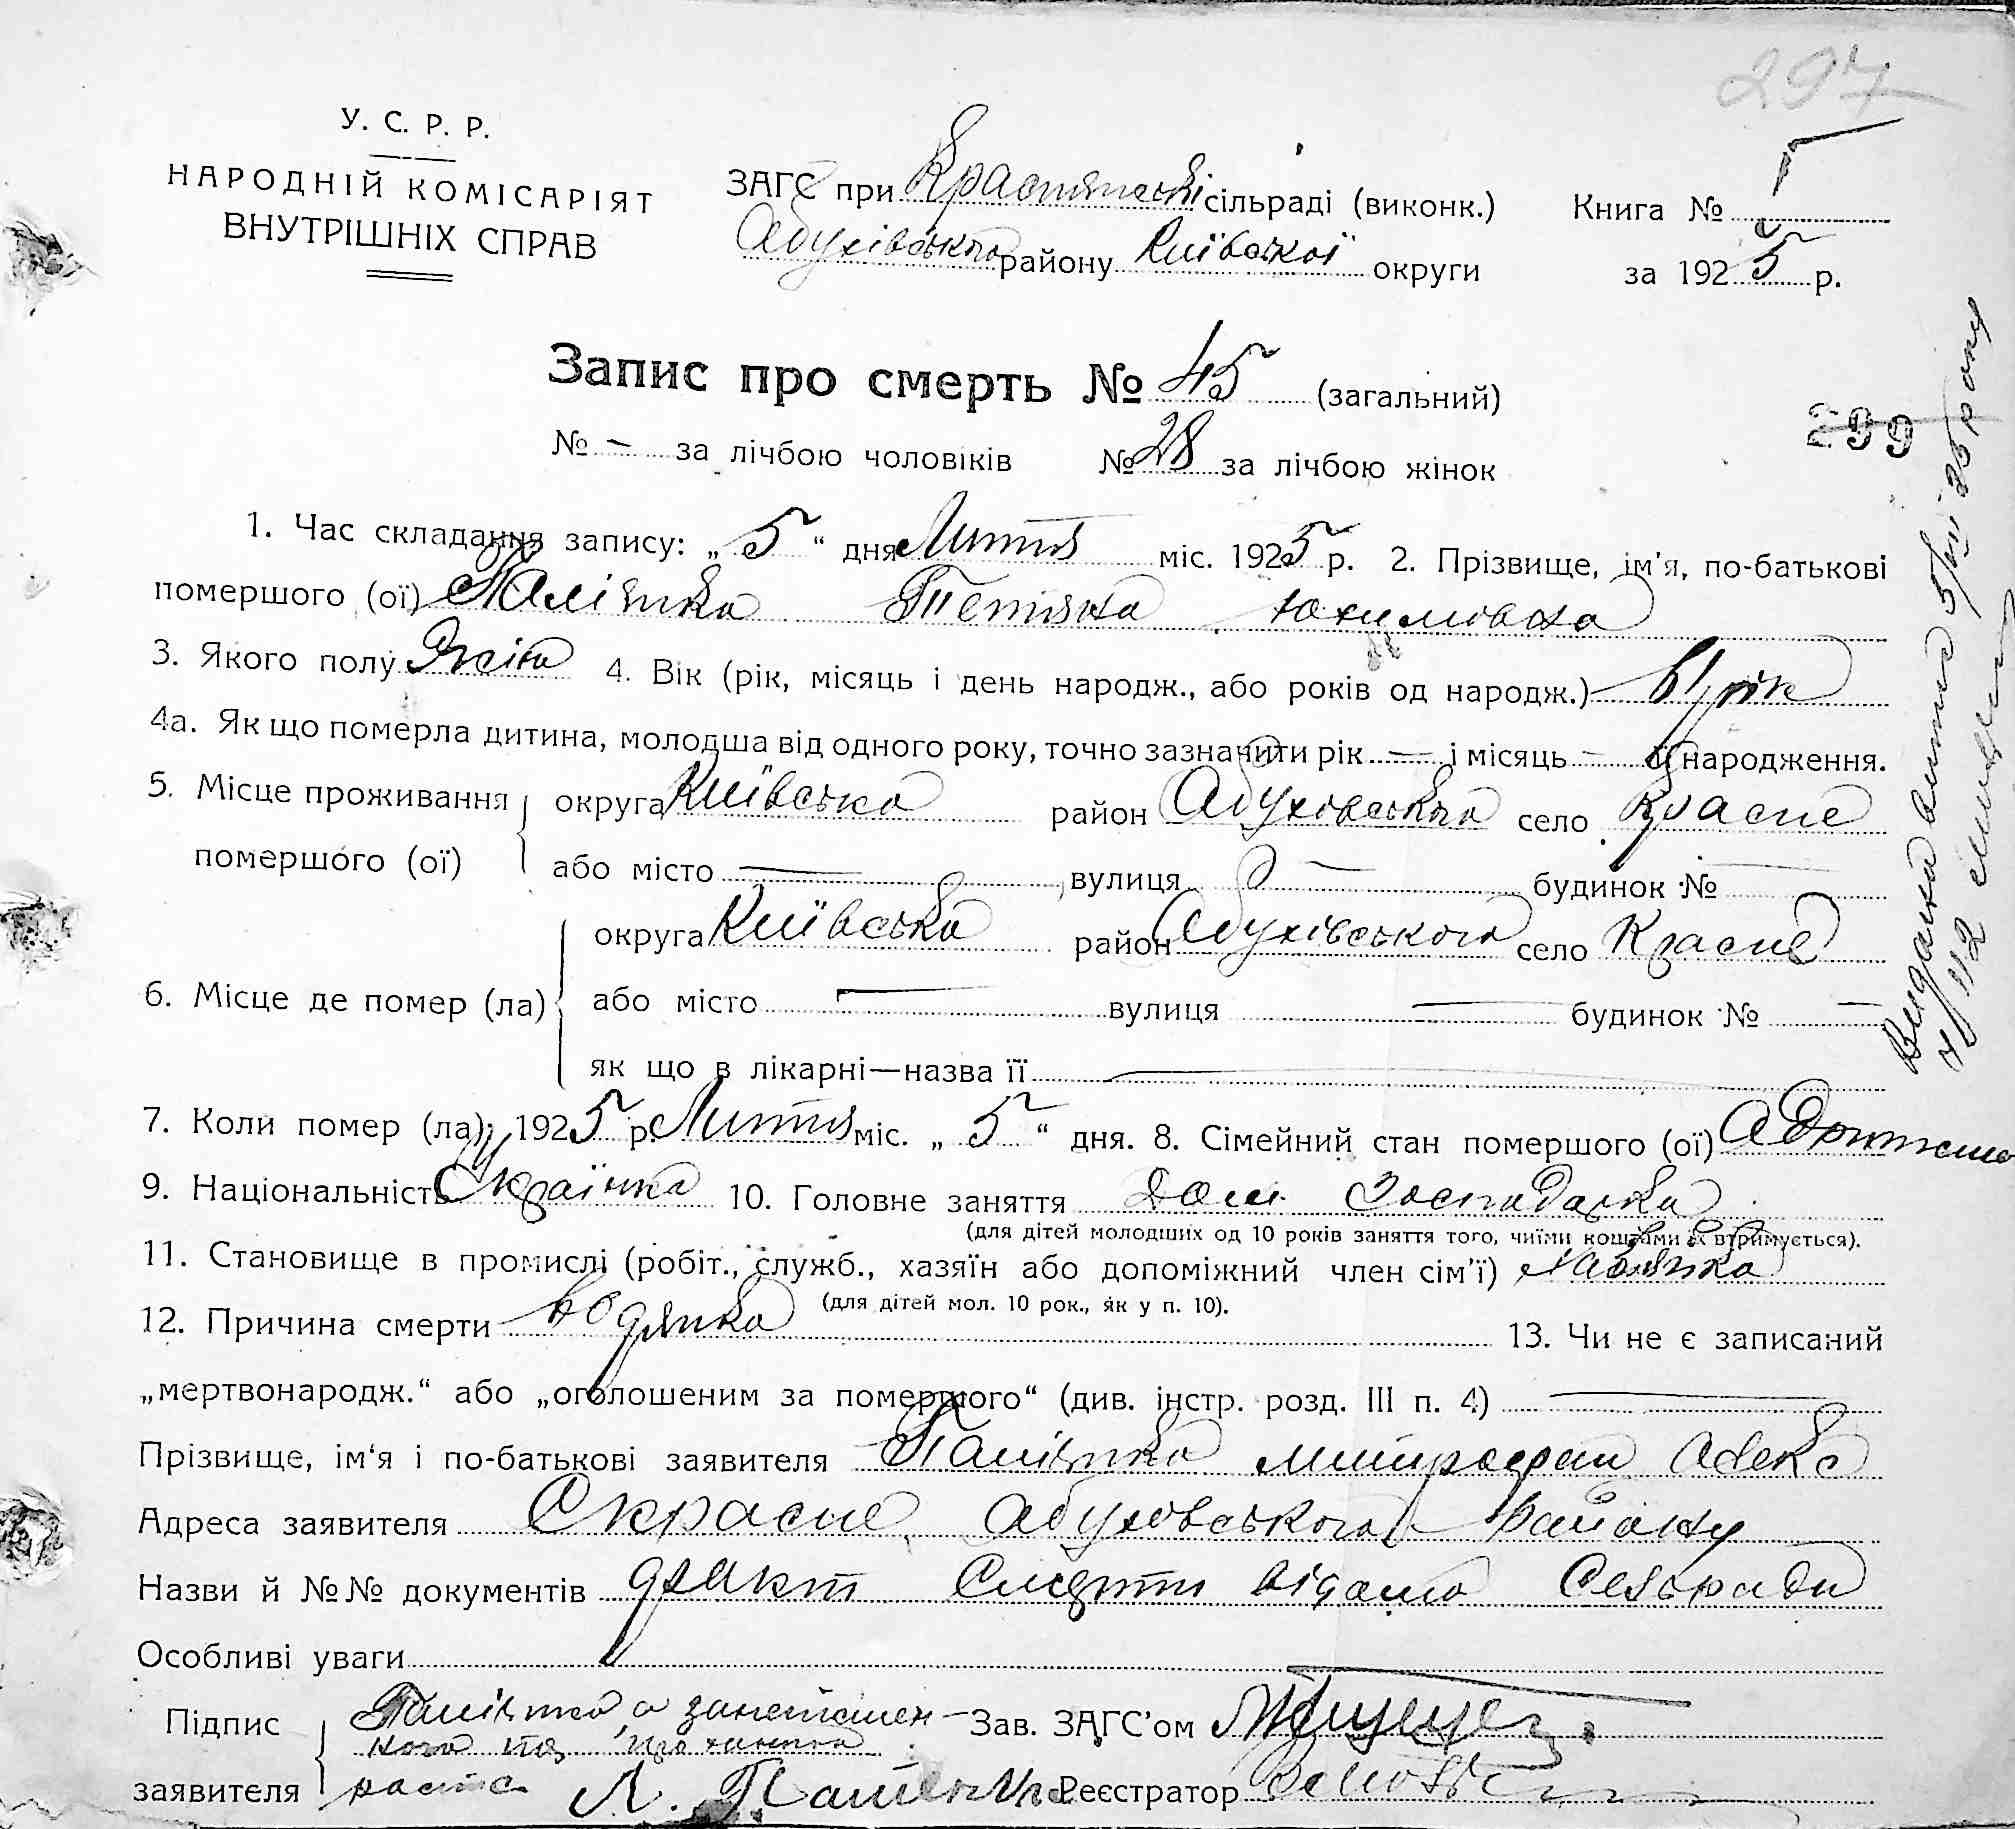 297
У. С. Р. Р.
НАРОДНІЙ КОМІСАРІЯТ
ВНУТРІШНІХ СПРАВ
ЗАГС при Краснянські сільраді (виконк.) Книга № 1
Абухівського району Київської округи за 1925 р.
Запис про смерть № 45 (загальний)
299
№ — за лічбою чоловіків № 28 за лічбою жінок
1. Час складання запису: „5" дня Липня міс. 1925 р. 2. Прізвище, ім'я, по-батькові
помершого (ої) Тетяна Юхимовна
3. Якого полу Жін 4. Вік (рік, місяць і день народж., або років од народж.) 61 рік
4а. Як що померла дитина, молодша від одного року, точно зазначити рік — і місяць — її народження.
5. Місце проживання округа Київська район Абуховського село Красне
помершого (ої) або місто — вулиця — будинок № —
округа Київська район Абухівського село Красне
6. Місце де помер (ла) або місто — вулиця — будинок № —
як що в лікарні—назва її —
7. Коли помер (ла) 1925 р. Липня міс. „5" дня. 8. Сімейний стан помершого (ої)
9. Національність Українка 10. Головне заняття Дом. Господарка
(для дітей молодших од 10 років заняття того, чиїми коштами втримується).
11. Становище в промислі (робіт., служб., хазяїн або допоміжний член сім'ї) Хазяйка
(для дітей мол. 10 рок., як у п. 10).
12. Причина смерти водянка 13. Чи не є записаний
„мертвонародж." або „оголошеним за помершого" (див. інстр. розд. III п. 4) —
Прізвище, ім'я і по-батькові заявителя Митрофан Алекс
Адреса заявителя С Красне Абуховського Району
Назви й №№ документів факт Смерти відомо Сельради
Особливі уваги
Підпис а Зав. ЗАГС'ом
заявителя Л. Реєстратор
Видана витяг 5/VII 25 року